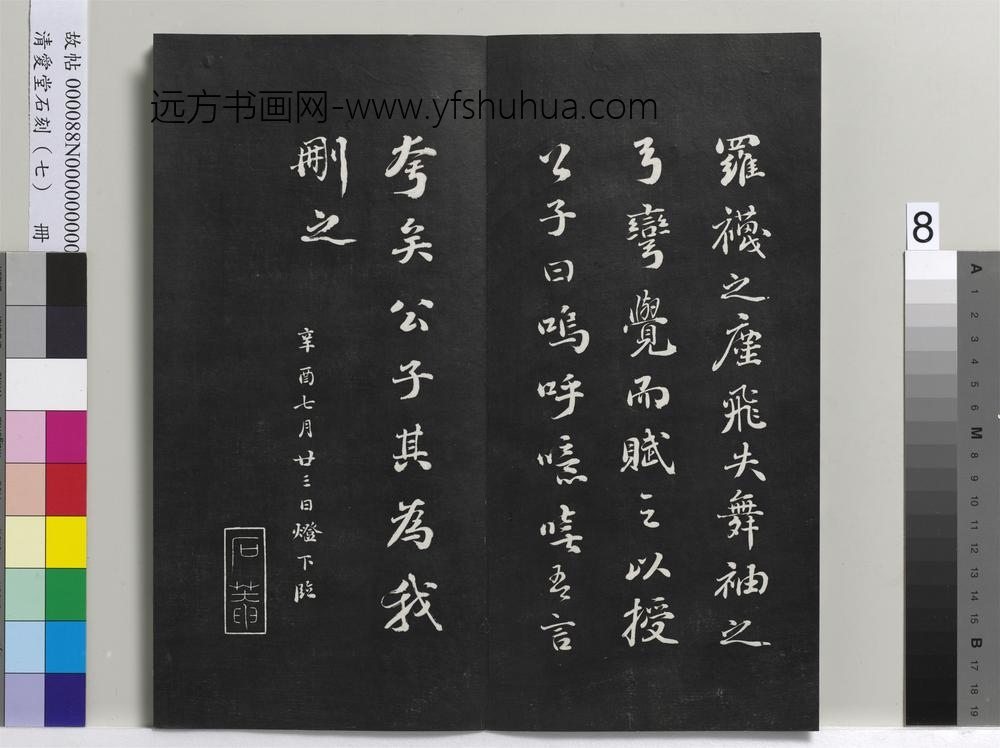 羅襪之塵飛失舞袖之
弓彎覺而賦之以授
公子曰嗚呼噫嘻吾言
夸矣公子其為我
刪之
辛酉七月廿三日燈下臨
石菴
远方书画网-www.yfshuhua.com
故帖 000088N000000000
清愛堂石刻（七） 冊
8
A
1
2
3
4
5
6
M
8
9
10
11
12
13
14
15
B
17
18
19